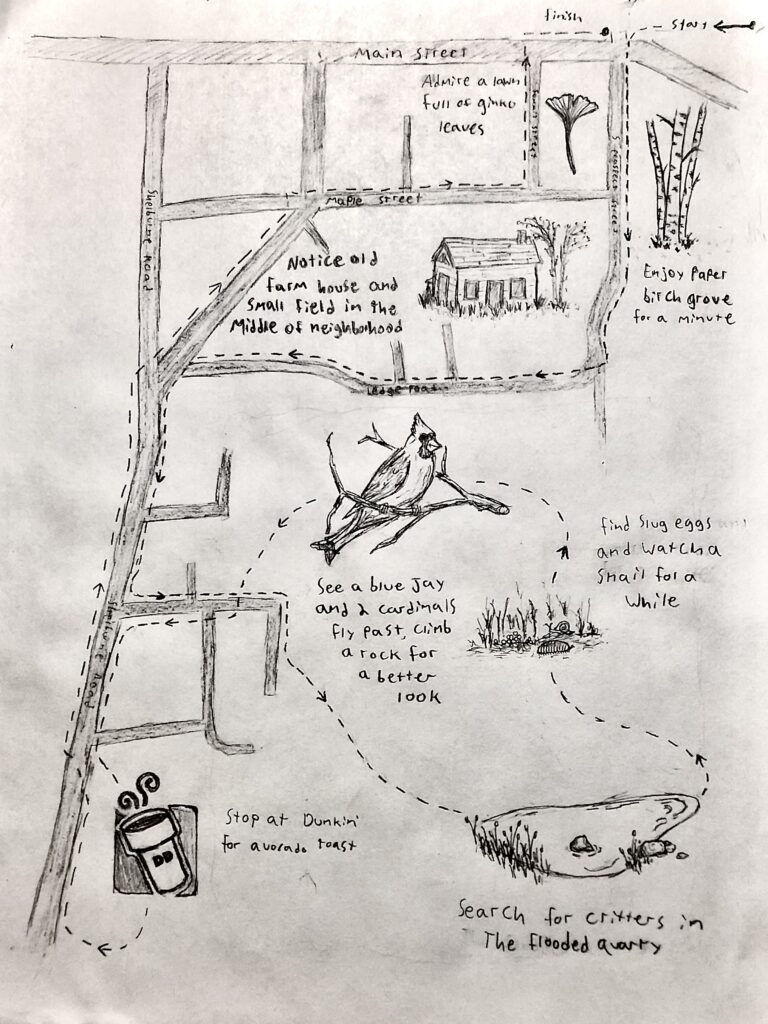 finish
start
Main street
Admire a lawn
full of ginko
leaves
Maple street
Shelburne Road
Notice old
farm house and
small field in the
Middle of neighborhood
Enjoy Paper
birch grove
for a minute
Ledge road
find slug eggs
and watch a
snail for a
while
See a blue jay
and 2 cardinals
fly past, climb
a rock for
a better
look
Shelburne Road
DD
Stop at Dunkin'
for avorado toast
Search for critters in
The flooded quarry